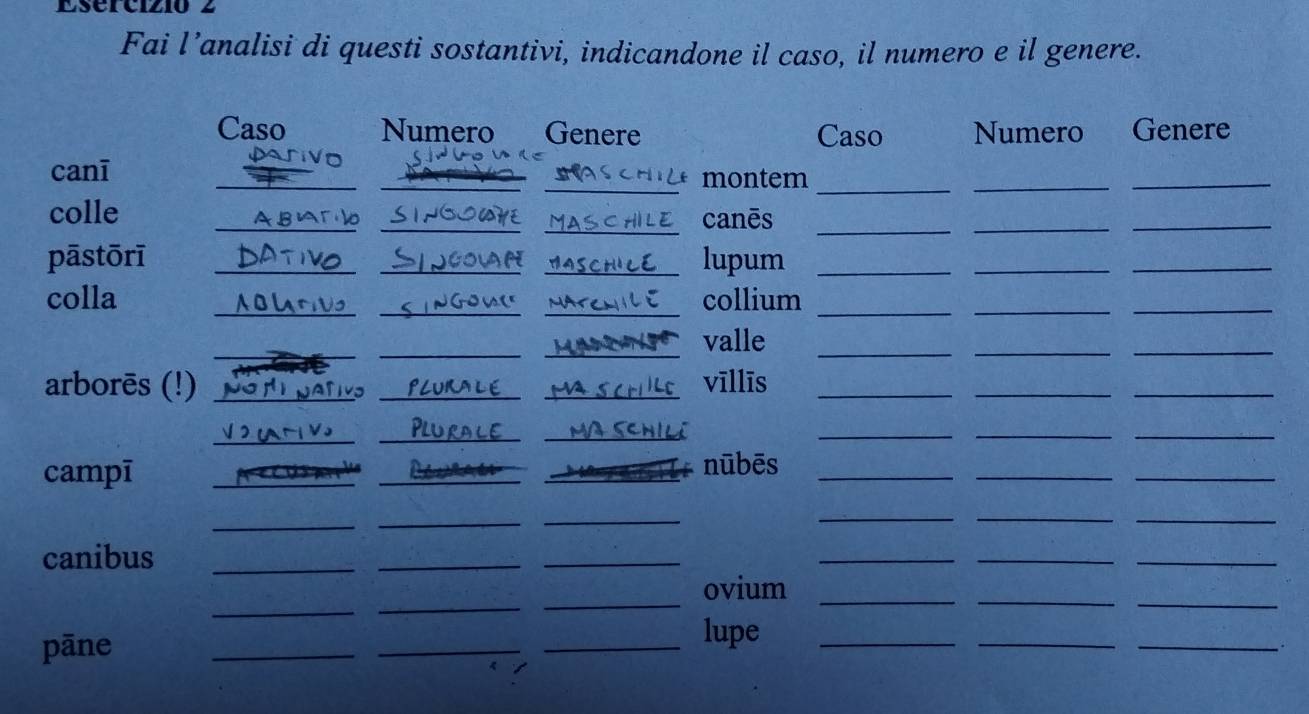 Esercizio 2
Fai l'analisi di questi sostantivi, indicandone il caso, il numero e il genere.
Caso Numero Genere Caso Numero Genere
DATIVO SINGOLARE
canī MASCHILE montem
colle ABLATIVO SINGOLARE MASCHILE canēs
pāstōrī DATIVO SINGOLARE MASCHILE lupum
colla ABLATIVO SINGOLARE MASCHILE collium
valle
arborēs (!) NOMINATIVO PLURALE MASCHILE vīllīs
VOCATIVO PLURALE MASCHILE
campī nūbēs
canibus
ovium
pāne lupe